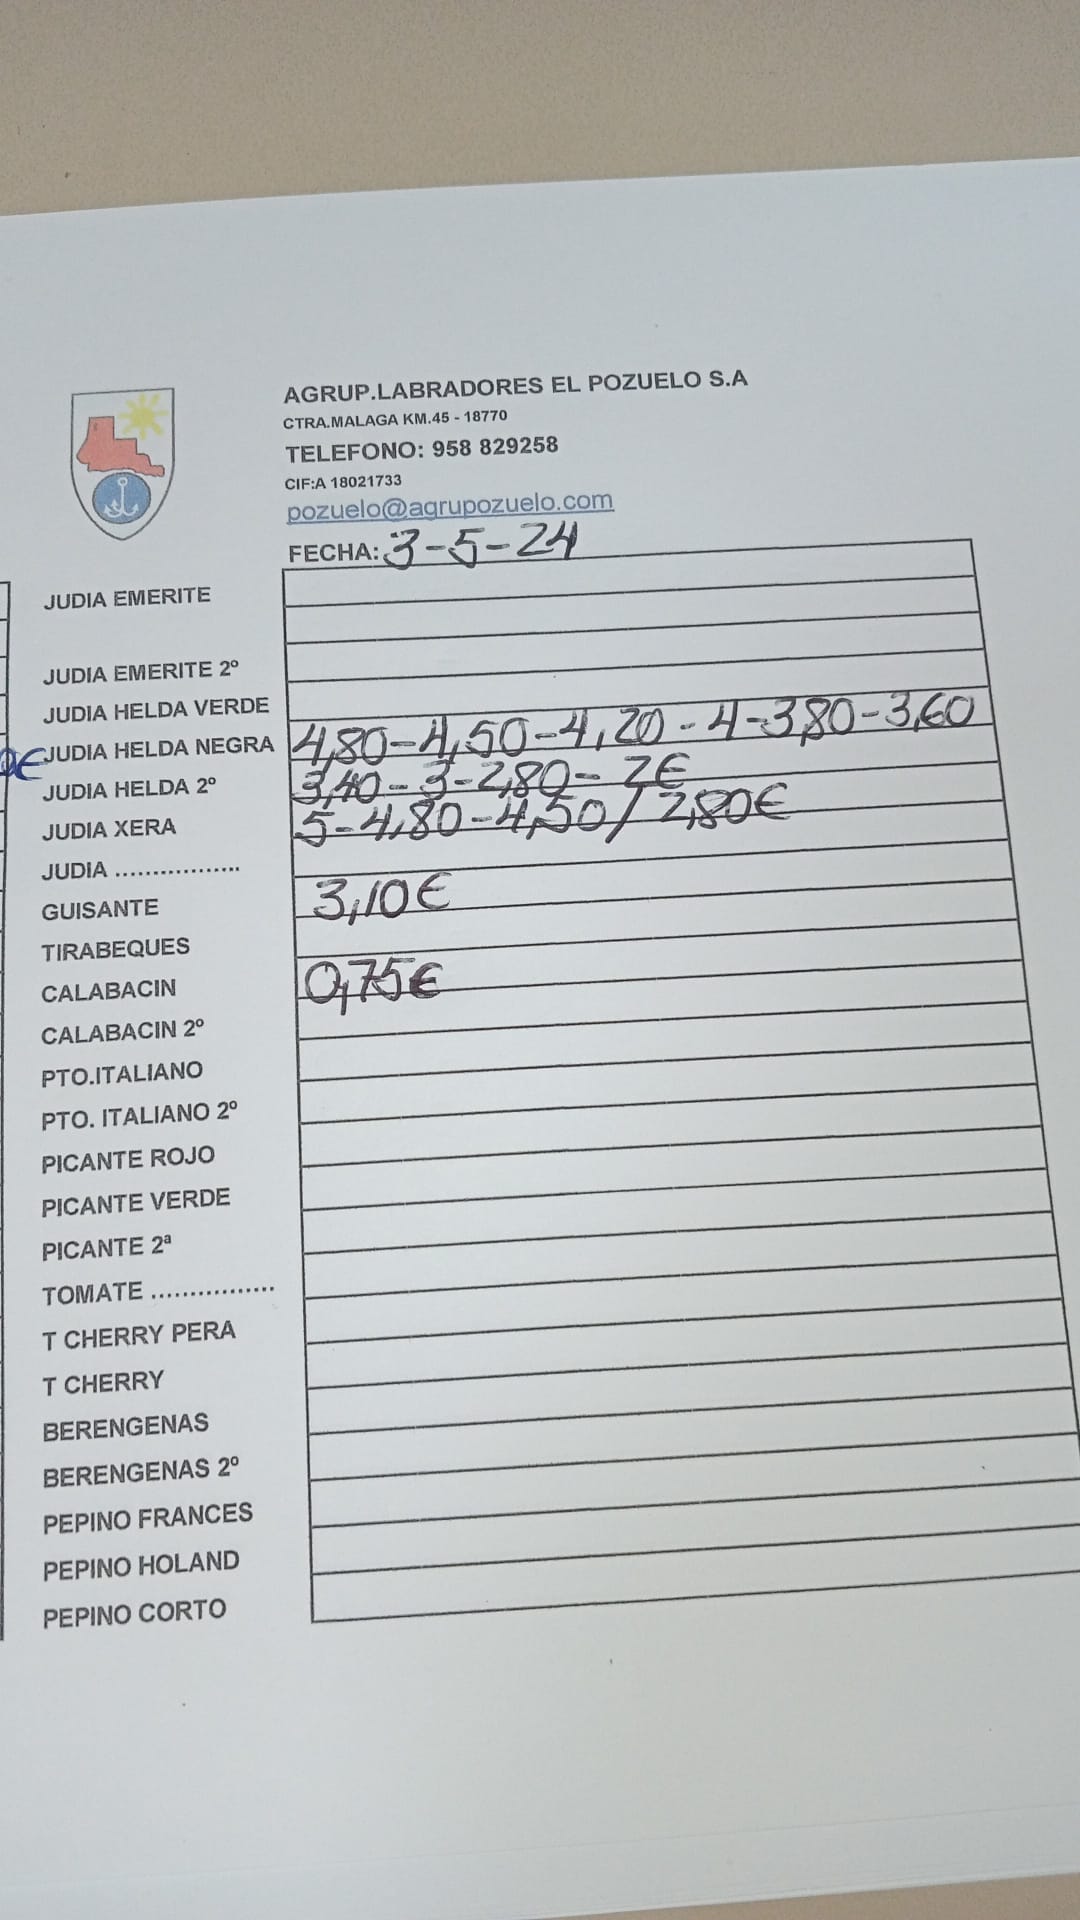 AGRUP.LABRADORES EL POZUELO S.A
CTRA.MALAGA KM.45 - 18770
TELEFONO: 958 829258
CIF:A 18021733
pozuelo@agrupozuelo.com
FECHA: 3-5-24
JUDIA EMERITE
JUDIA EMERITE 2º
JUDIA HELDA VERDE
JUDIA HELDA NEGRA 4,80-4,50-4,20-4-3,80-3,60
JUDIA HELDA 2º 3,40-3-2,80-2€
JUDIA XERA 5-4,80-4,50/2,80€
JUDIA .................
GUISANTE 3,10€
TIRABEQUES
CALABACIN 0,75€
CALABACIN 2º
PTO.ITALIANO
PTO. ITALIANO 2º
PICANTE ROJO
PICANTE VERDE
PICANTE 2ª
TOMATE ................
T CHERRY PERA
T CHERRY
BERENGENAS
BERENGENAS 2º
PEPINO FRANCES
PEPINO HOLAND
PEPINO CORTO